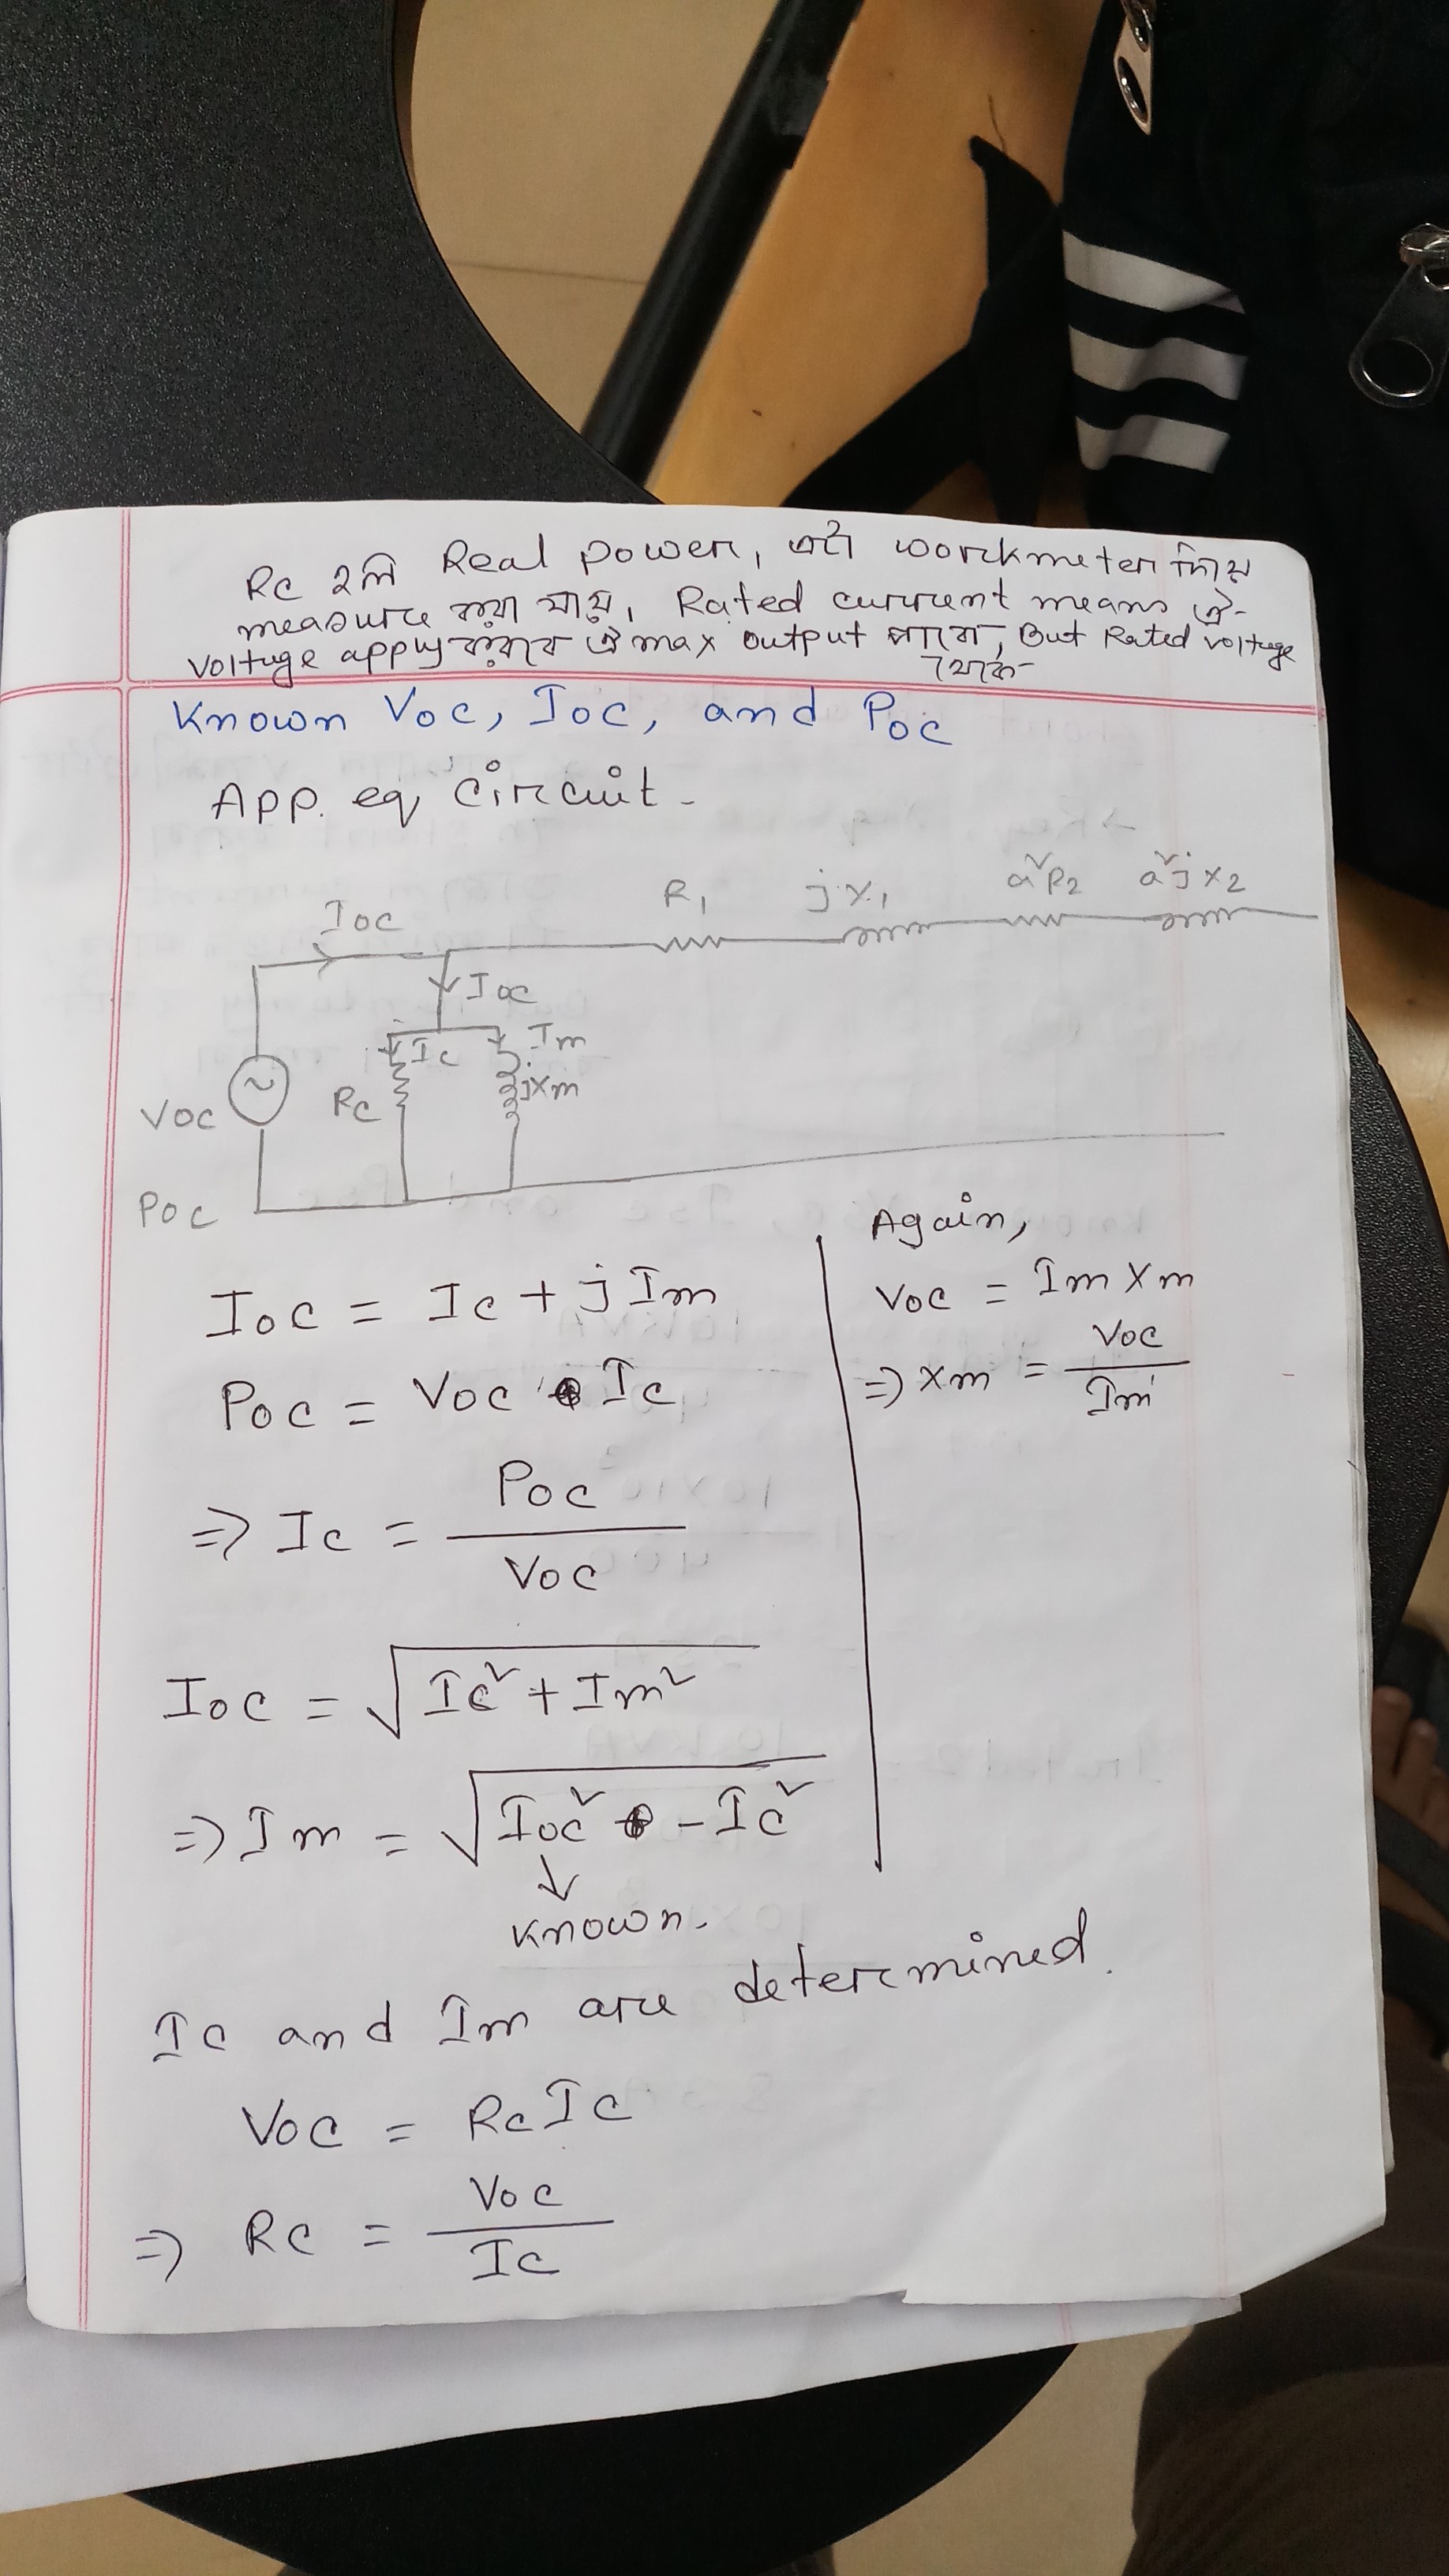 Rc হলি Real power, এটা workmeter দিয়ে
measure করা যায়, Rated current means ঐ
voltuge appyকরবে ঐ max output পাবো, But Rated voltuge
থেকে
Known Voc, Ioc, and Poc
App. eq circuit-
R₁ jx₁ a²R₂ a²jx₂
Ioc
Ioc
Ic Im
Voc Rc jxm
Poc
Ioc = Ic + jIm
Poc = Voc Ic
⇒ Ic = Poc / Voc
Ioc = √(Ic² + Im²)
⇒ Im = √(Ioc² - Ic²)
↓
known.
Ic and Im are determined.
Voc = RcIc
⇒ Rc = Voc / Ic
Again,
Voc = Im Xm
⇒ Xm = Voc / Im